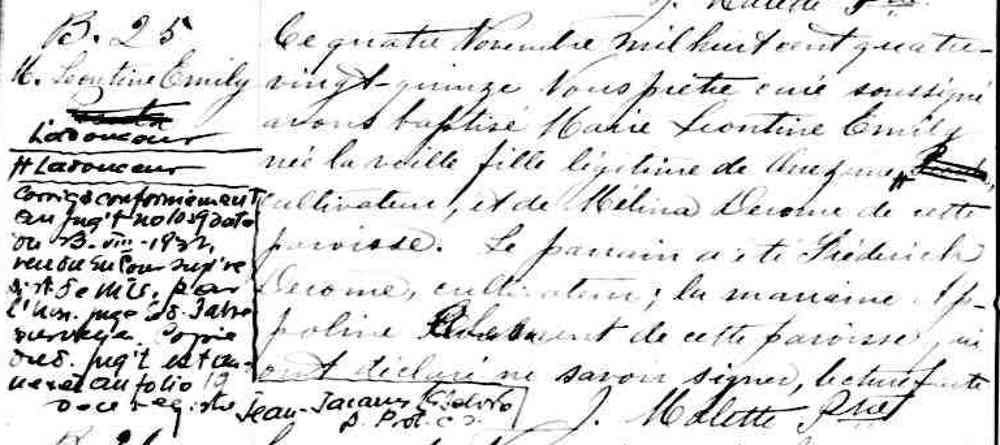 J. Malette Ptre
B. 25
M. Leontine Emily
Ladouceur
# Ladouceur
Corrigé conformément
au jug't no 1059 daté
du 23-VIII-1932,
rendu en Cour Sup're
dist. de Mtl, par
l'Hon. juge Ed. Fabre
Surveyer. Copie
dud. jug't est an-
nexée au folio 19
de ce registre
Jean-Jacques
D. Prot. C.S.
Ce quatre Novembre mil huit cent quatre-
vingt-quinze Nous prêtre curé soussigné
avons baptisé Marie Leontine Emily
née la veille fille légitime de Onezime #
cultivateur, et de Mélina Derome de cette
paroisse. Le parrain a été Fréderick
Derome, cultivateur; la marraine Ap-
poline de cette paroisse, qui
ont déclaré ne savoir signer, lecture faite
J. Malette Ptre